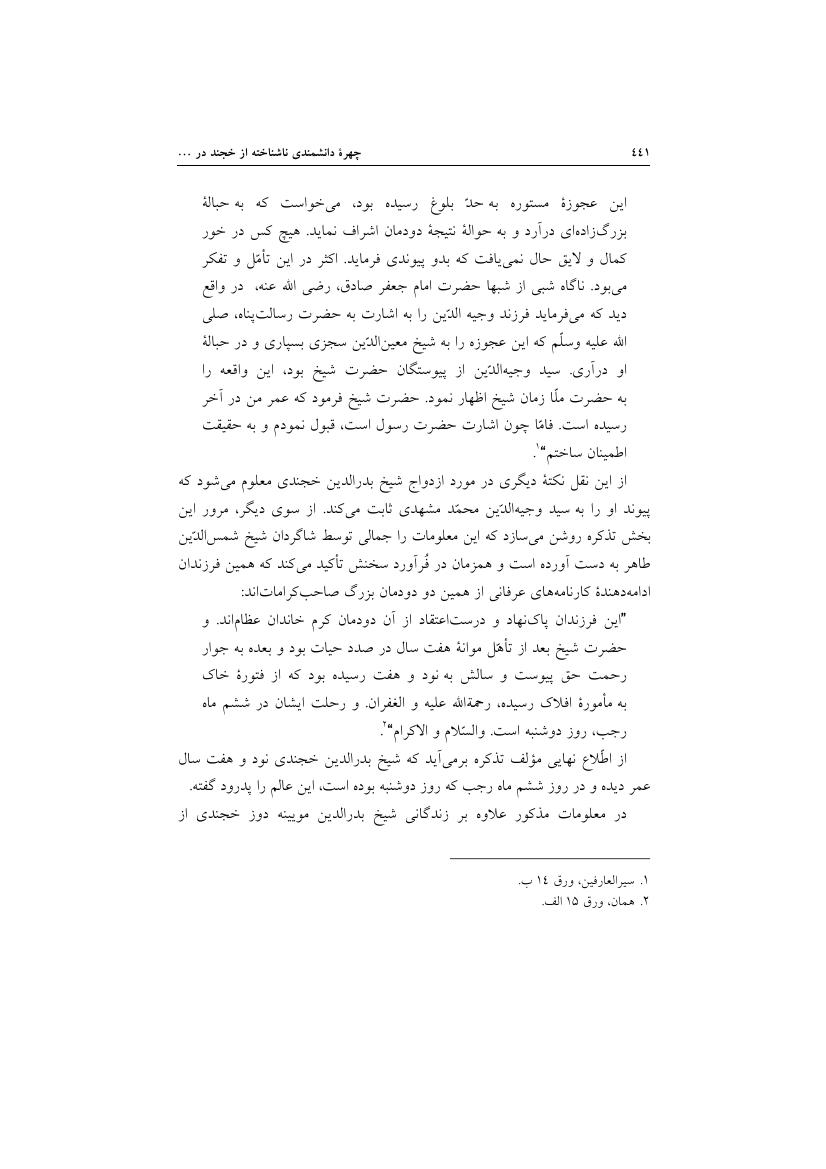 ٤٤١ چهرهٔ دانشمندی ناشناخته از خجند در ...
این عجوزهٔ مستوره به حدّ بلوغ رسیده بود، می‌خواست که به حبالهٔ
بزرگ‌زاده‌ای درآرد و به حوالهٔ نتیجهٔ دودمان اشراف نماید. هیچ کس در خور
کمال و لایق حال نمی‌یافت که بدو پیوندی فرماید. اکثر در این تأمّل و تفکر
می‌بود. ناگاه شبی از شبها حضرت امام جعفر صادق، رضی الله عنه، در واقع
دید که می‌فرماید فرزند وجیه الدّین را به اشارت به حضرت رسالت‌پناه، صلی
الله علیه وسلّم که این عجوزه را به شیخ معین‌الدّین سجزی بسپاری و در حبالهٔ
او درآری. سید وجیه‌الدّین از پیوستگان حضرت شیخ بود، این واقعه را
به حضرت ملّا زمان شیخ اظهار نمود. حضرت شیخ فرمود که عمر من در آخر
رسیده است. فامّا چون اشارت حضرت رسول است، قبول نمودم و به حقیقت
اطمینان ساختم“۱.
از این نقل نکتهٔ دیگری در مورد ازدواج شیخ بدرالدین خجندی معلوم می‌شود که
پیوند او را به سید وجیه‌الدّین محمّد مشهدی ثابت می‌کند. از سوی دیگر، مرور این
بخش تذکره روشن می‌سازد که این معلومات را جمالی توسط شاگردان شیخ شمس‌الدّین
طاهر به دست آورده است و همزمان در فُرآورد سخنش تأکید می‌کند که همین فرزندان
ادامه‌دهندهٔ کارنامه‌های عرفانی از همین دو دودمان بزرگ صاحب‌کرامات‌اند:
”این فرزندان پاک‌نهاد و درست‌اعتقاد از آن دودمان کرم خاندان عظام‌اند. و
حضرت شیخ بعد از تأهّل موانهٔ هفت سال در صدد حیات بود و بعده به جوار
رحمت حق پیوست و سالش به نود و هفت رسیده بود که از فتورهٔ خاک
به مأمورهٔ افلاک رسیده، رحمةالله علیه و الغفران. و رحلت ایشان در ششم ماه
رجب، روز دوشنبه است. والسّلام و الاکرام“۲.
از اطّلاع نهایی مؤلف تذکره برمی‌آید که شیخ بدرالدین خجندی نود و هفت سال
عمر دیده و در روز ششم ماه رجب که روز دوشنبه بوده است، این عالم را پدرود گفته.
در معلومات مذکور علاوه بر زندگانی شیخ بدرالدین مویینه دوز خجندی از
۱. سیرالعارفین، ورق ١٤ ب.
۲. همان، ورق ۱۵ الف.